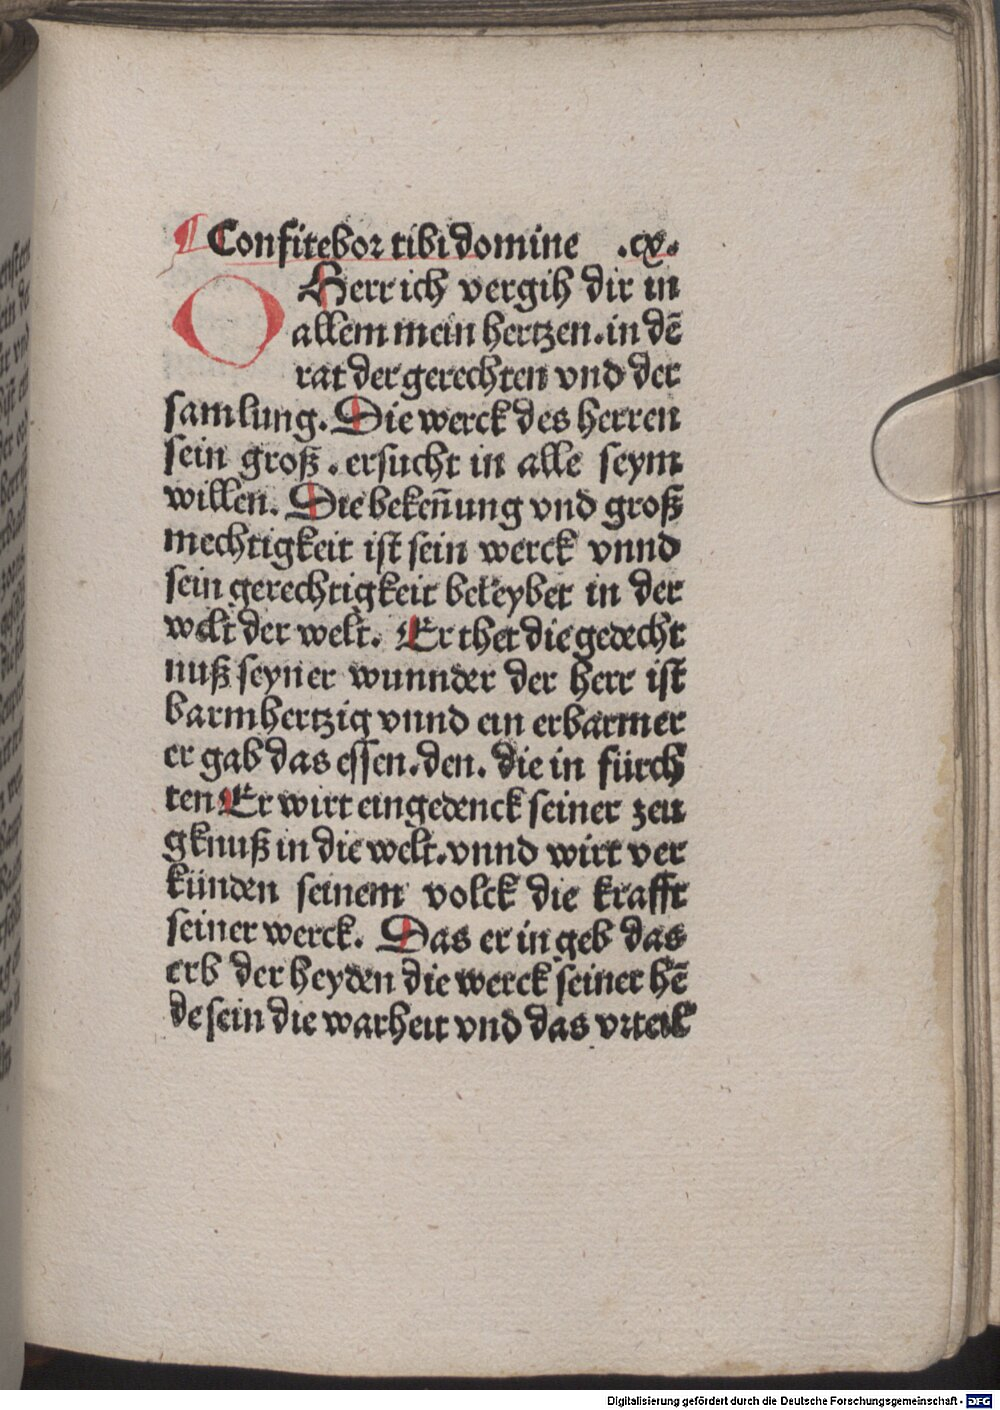 ¶ Confitebor tibi domine .cx.
O Herr ich vergih dir in
allem mein hertzen. in dē
rat der gerechten vnd der
samlung. Die werck des herren
sein groß . ersucht in alle seym
willen. Die bekeñung vnd groß
mechtigkeit ist sein werck vnnd
sein gerechtigkeit beleybet in der
welt der welt. Er thet die gedecht
nuß seyner wunnder der herr ist
barmhertzig vnnd ein erbarmer
er gab das essen. den. die in fürch
ten Er wirt eingedenck seiner zeu
gknuß in die welt. vnnd wirt ver
künden seinem volck die krafft
seiner werck. Das er in geb das
erb der heyden die werck seiner hē
de sein die warheit vnd das vrteil
Digitalisierung gefördert durch die Deutsche Forschungsgemeinschaft - DFG